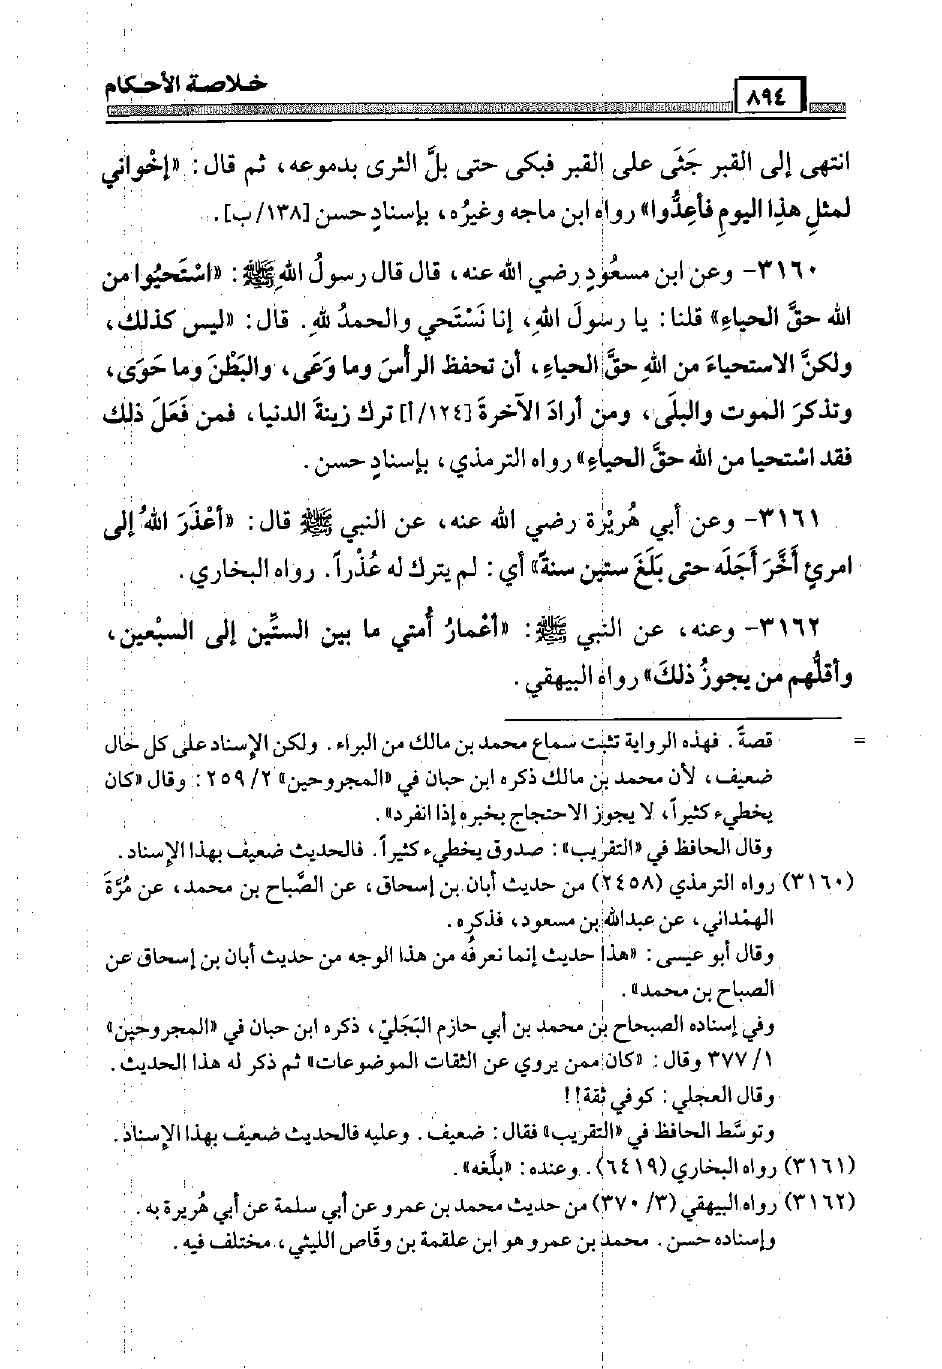 خلاصة الأحكام
٨٩٤
انتهى إلى القبر جَثَى على القبر فبكى حتى بلَّ الثرى بدموعه، ثم قال: «إخْواني
لمثلِ هذا اليومِ فأعِدُّوا» رواه ابن ماجه وغيرُه، بإسنادٍ حسن [١٣٨/ب].
٣١٦٠- وعن ابن مسعُودٍ رضي الله عنه، قال قال رسولُ اللهِ ﷺ: «اسْتَحيُوا من
الله حقَّ الحياءِ» قلنا: يا رسولَ اللهِ، إنا نَسْتَحي والحمدُ للهِ. قال: «ليس كذلك،
ولكنَّ الاستحياءَ من اللهِ حقَّ الحياءِ، أن تحفظ الرأْسَ وما وَعَى، والبَطْنَ وما حَوَى،
وتذكرَ الموت والبلَى، ومن أرادَ الآخرةَ [١٢٤/أ] ترك زينةَ الدنيا، فمن فَعَلَ ذلك
فقد اسْتحيا من الله حقَّ الحياءِ» رواه الترمذي، بإسنادٍ حسن.
٣١٦١- وعن أبي هُريْرة رضي الله عنه، عن النبي ﷺ قال: «أعْذَرَ اللهُ إلى
امرئٍ أَخَّرَ أَجَلَه حتى بَلَغَ ستين سنةً» أي: لم يترك له عُذْراً. رواه البخاري.
٣١٦٢- وعنه، عن النبي ﷺ: «أعْمارُ أُمتي ما بين الستِّين إلى السبْعين،
وأقلُّهم من يجوزُ ذلكَ» رواه البيهقي.
= قصةً. فهذه الرواية تثبت سماع محمد بن مالك من البراء. ولكن الإسناد على كل حال
ضعيف، لأن محمد بن مالك ذكره ابن حبان في «المجروحين» ٢/ ٢٥٩: وقال «كان
يخطيء كثيراً، لا يجوز الاحتجاج بخبره إذا انفرد».
وقال الحافظ في «التقريب»: صدوق يخطيء كثيراً. فالحديث ضعيف بهذا الإسناد.
(٣١٦٠) رواه الترمذي (٢٤٥٨) من حديث أبان بن إسحاق، عن الصَّباح بن محمد، عن مُرَّةَ
الهمْداني، عن عبدالله بن مسعود، فذكره.
وقال أبو عيسى: «هذا حديث إنما نعرفُه من هذا الوجه من حديث أبان بن إسحاق عن
الصباح بن محمد».
وفي إسناده الصبحاح بن محمد بن أبي حازم البَجَليّ، ذكره ابن حبان في «المجروحين»
١/ ٣٧٧ وقال: «كان ممن يروي عن الثقات الموضوعات» ثم ذكر له هذا الحديث.
وقال العجلي: كوفي ثقة!!
وتوسَّط الحافظ في «التقريب» فقال: ضعيف. وعليه فالحديث ضعيف بهذا الإسناد.
(٣١٦١) رواه البخاري (٦٤١٩). وعنده: «بلَّغه».
(٣١٦٢) رواه البيهقي (٣/ ٣٧٠) من حديث محمد بن عمرو عن أبي سلمة عن أبي هُريرة به.
وإسناده حسن. محمد بن عمرو هو ابن علقمة بن وقّاص الليثي، مختلف فيه.